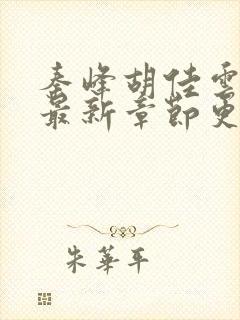 秦峰胡佳雲
最新章節更
朱華平